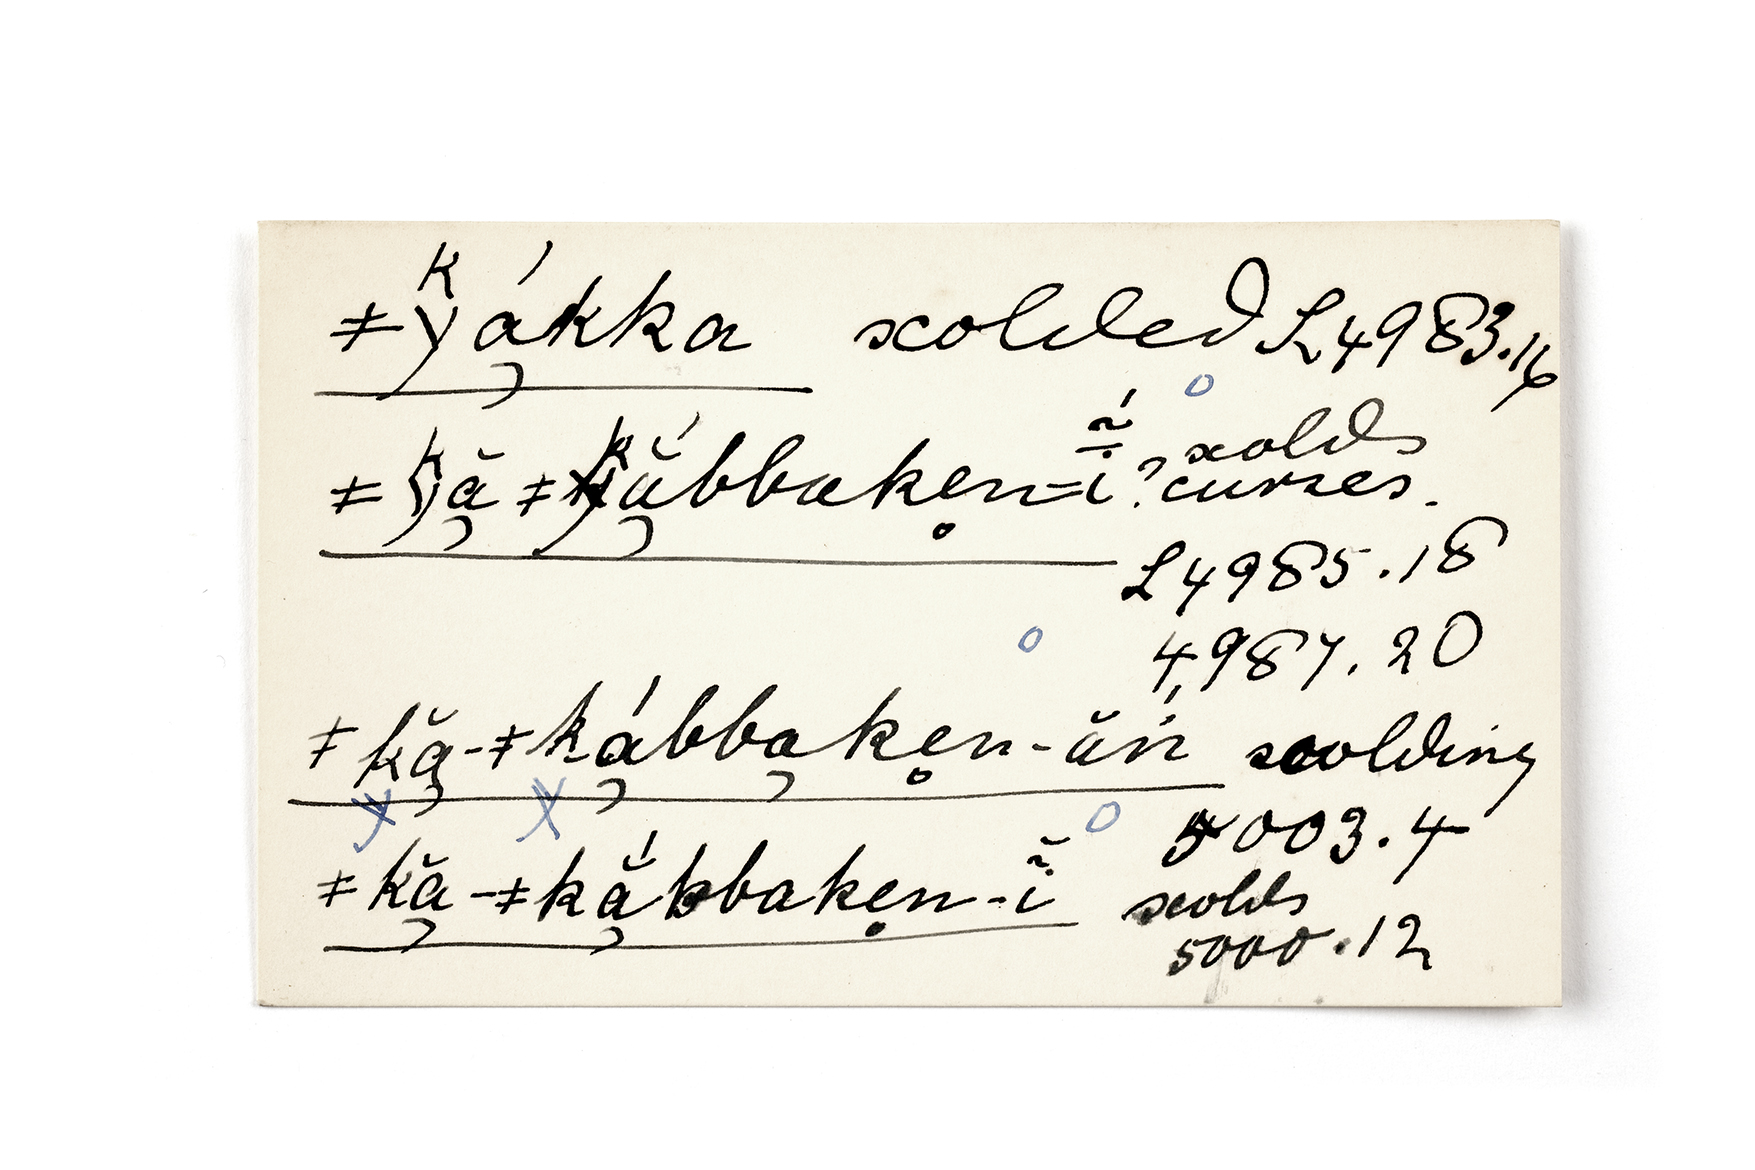 ǂkγá̡kka scolded L4983.16
ǂkγă̡ ǂkắ̡bbaken̥=ĩ́? scolds
curses.
L4985.18
4,987.20
ǂkă̡-ǂká̡bba̡ke̥n-ăṅ scolding
5003.4
ǂkă̡-ǂkắ̡bbake̥n-ĩ̆ scolds
5000.12